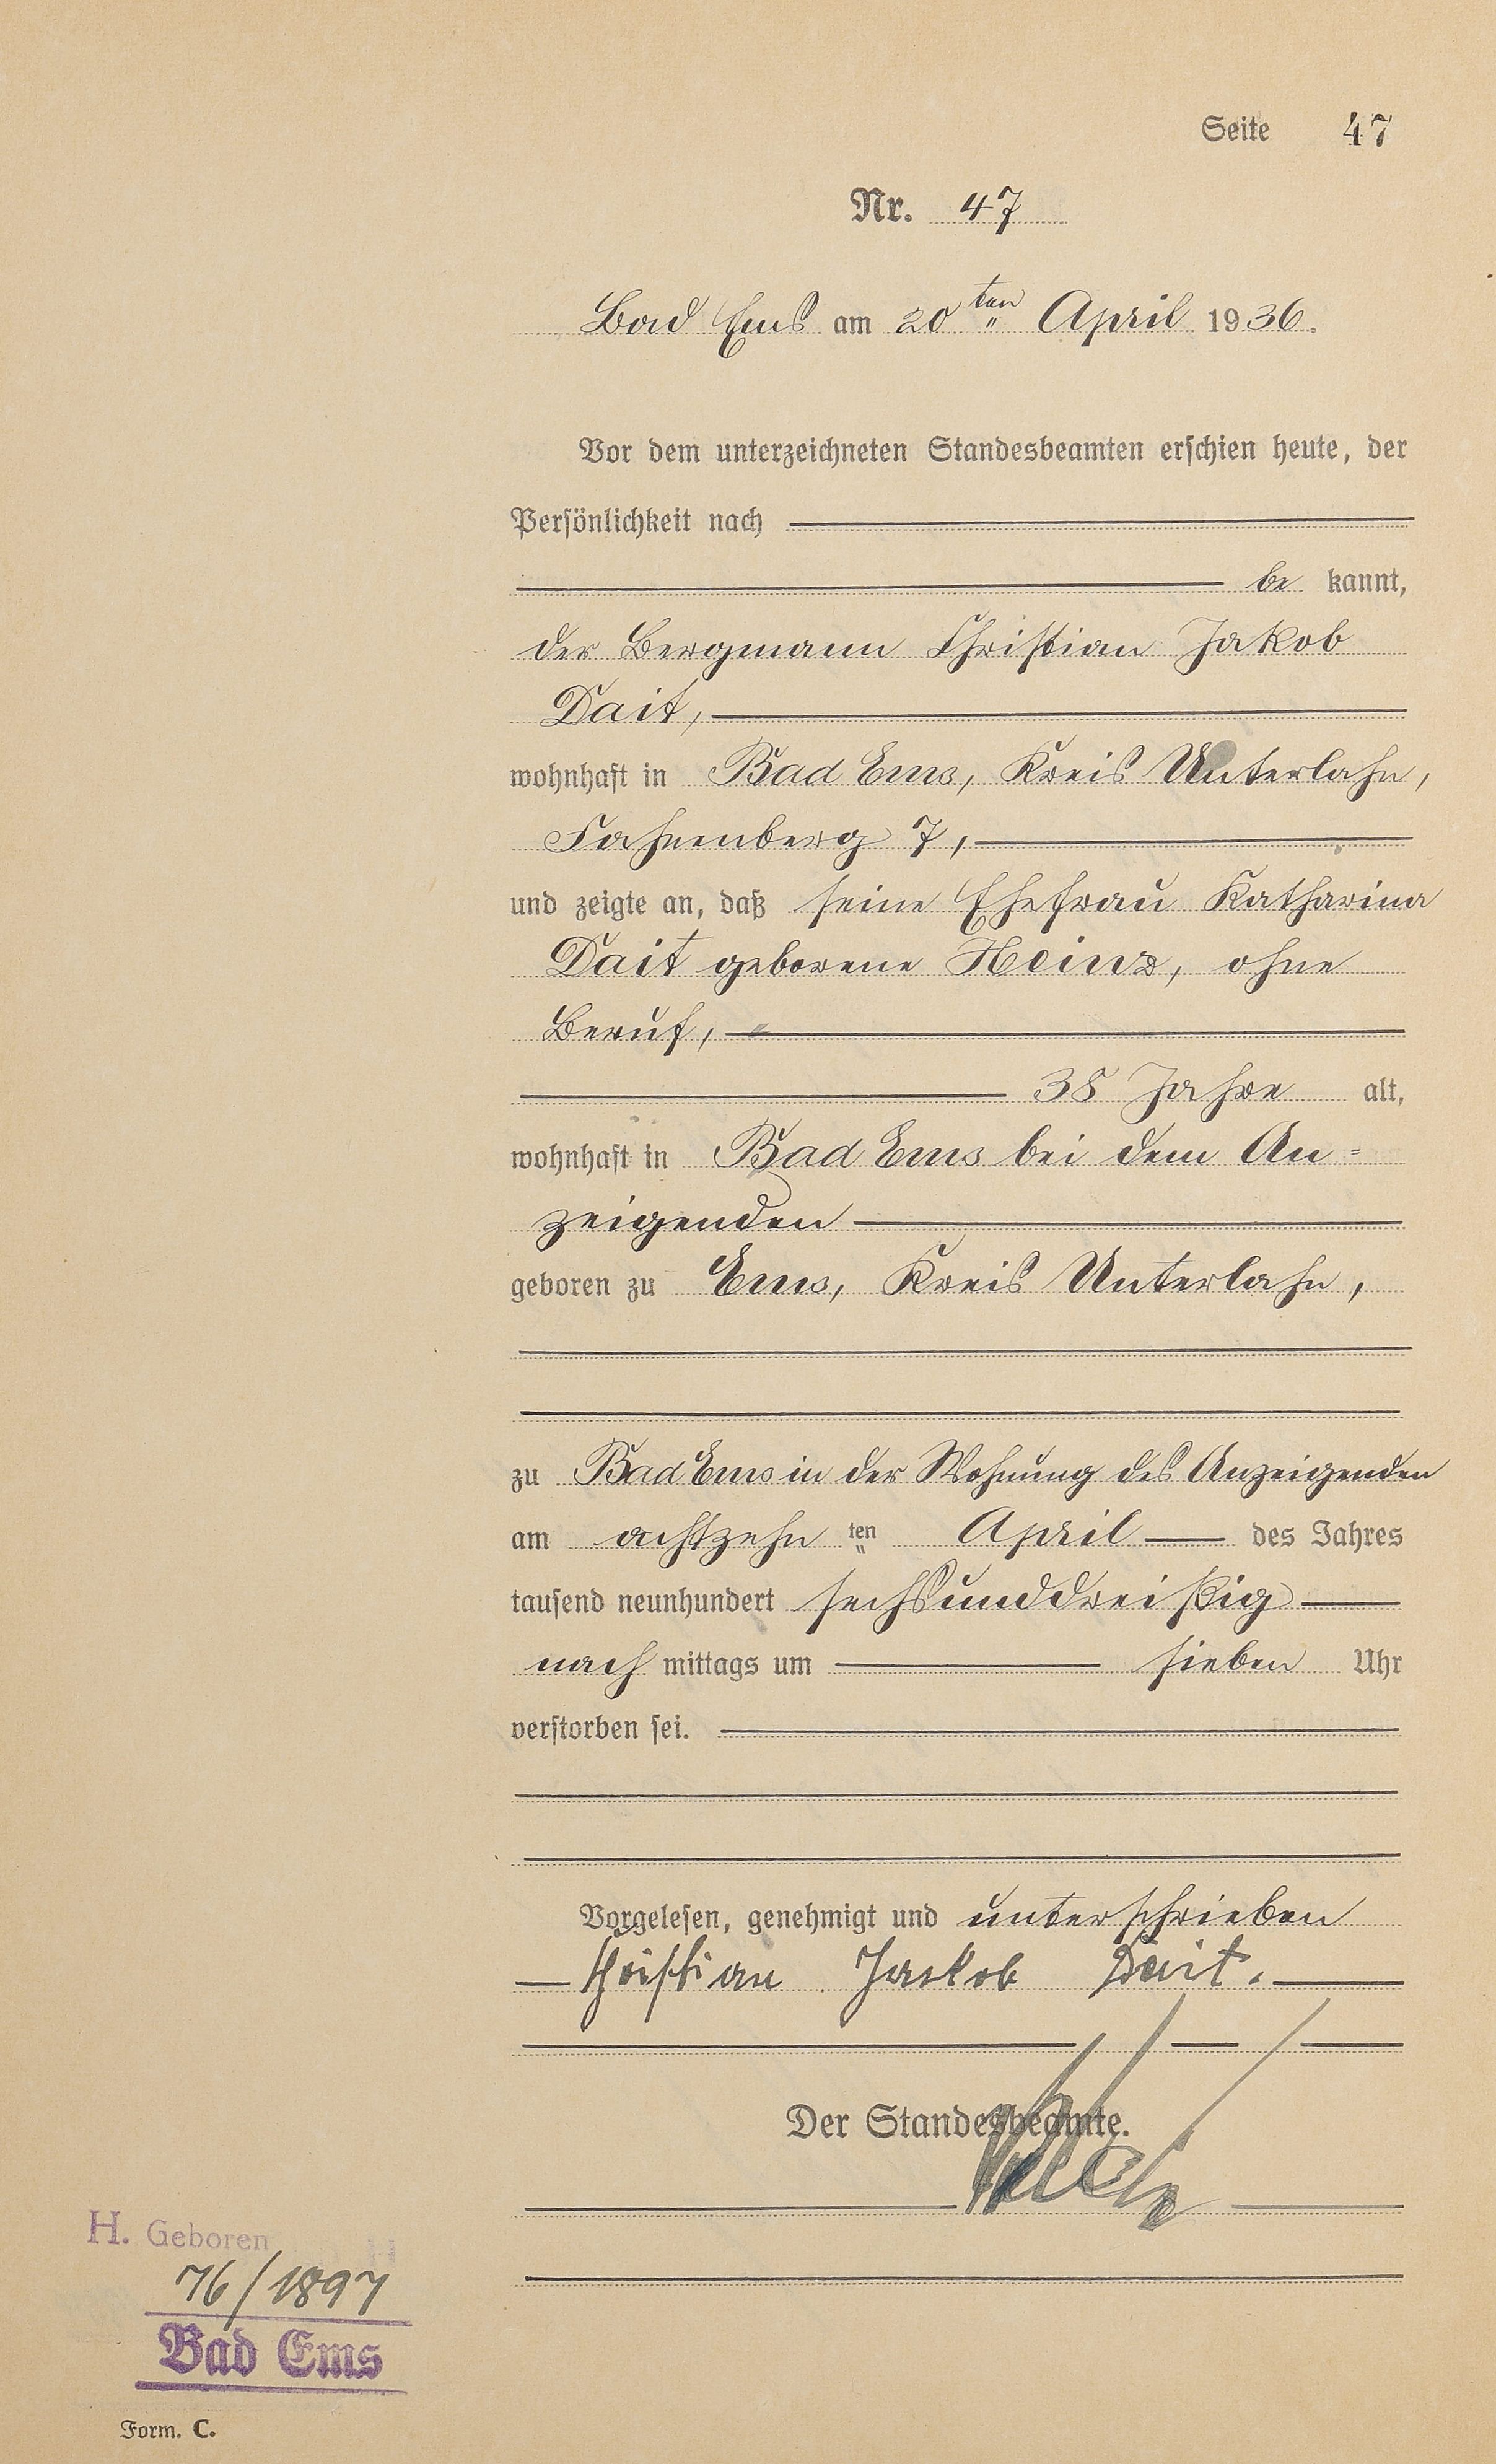 Seite 47
Nr. 47
Bad Ems am 20ten April 1936.
Vor dem unterzeichneten Standesbeamten erschien heute, der
Persönlichkeit nach
be kannt,
der Bergmann Christian Jakob
Dait,
wohnhaft in Bad Ems, Kreis Unterlahn,
Fahnenberg 7,
und zeigte an, daß seine Ehefrau Katharina
Dait geborene Heinz, ohne
Beruf,
38 Jahre alt,
wohnhaft in Bad Ems bei dem An=
zeigenden
geboren zu Ems, Kreis Unterlahn,
zu Bad Ems in der Wohnung des Anzeigenden
am achtzehn ten April des Jahres
tausend neunhundert sechsunddreißig
nach mittags um sieben Uhr
verstorben sei.
Vorgelesen, genehmigt und unterschrieben
Christian Jakob Dait.
Der Standesbeamte.
H. Geboren
76/1897
Bad Ems
Form. C.